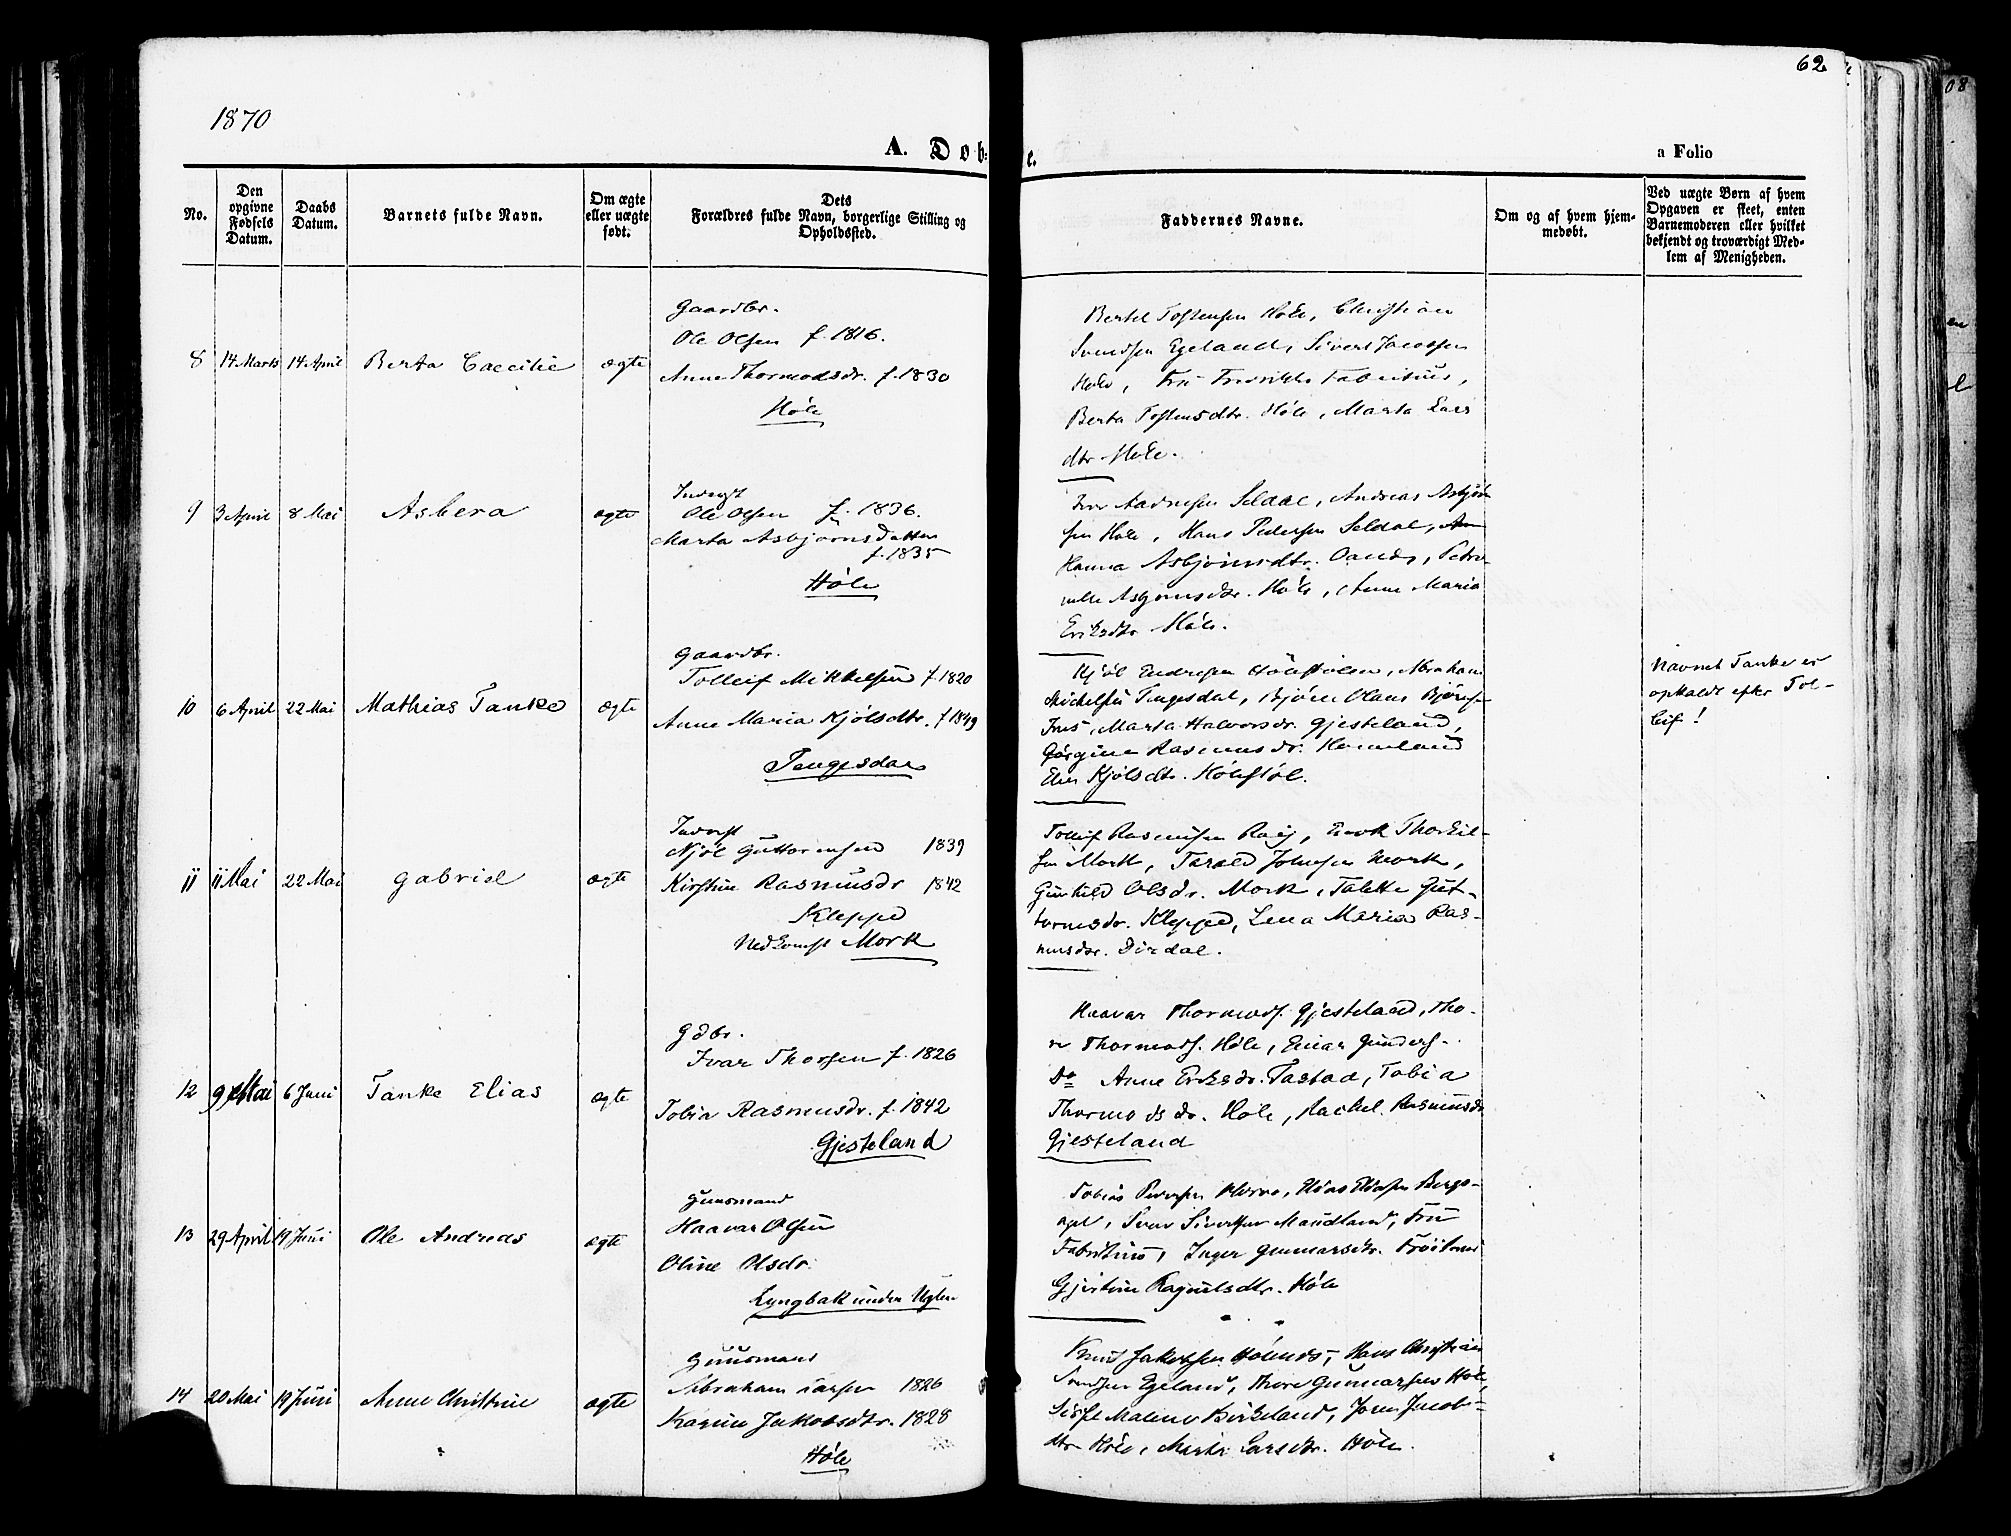 62
1870
A. Dob-
e.
a Folio
No.
Den opgivne Fødsels Datum.
Daabs Datum.
Barnets fulde Navn.
Om ægte eller uægte født.
Dets Forældres fulde Navn, borgerlige Stilling og Opholdssted.
Faddernes Navne.
Om og af hvem hjem-
medøbt.
Ved uægte Børn af hvem
Opgaven er skeet, enten
Barnemoderen eller hvilket
bekjendt og troværdigt Med-
lem af Menigheden.
8 14 Marts 14 April Berta Caecilie ægte
Gaardbr.
Ole Olsen f. 1816.
Anne Thormodsdr. f. 1830
Høle
Bertel Tostensen Høle, Christian
Svendsen Egeland, Sivert Jacobsen
Høle, Fru Fabritius,
Berta Tostensdtr. Høle, Marta Lars
dtr Høle.
9 3 April 8 Mai Asbera ægte
Inderst
Ole Olsen f. 1836.
Marta Asbjørnsdatter
f. 1835
Høle
Seldal, Andreas Asbjørn
sen Høle, Hans Pedersen Seldal,
Hanna Asbjørnsdtr. Oands, Petro
nelle Asbjørnsdtr. Høle, Anne Maria
Eriksdtr Høle.
10 6 April 22 Mai Mathias Tanke ægte
Gaardbr.
Tolleif Mikkelsen f 1820
Anne Maria Kjølsdtr. f 1849
Tengesdal
Kjøl Endresen Hølestølen, Abraham
Mikkelsen Tengesdal, Bjørn Olaus Bjørns-
Marta Halvorsdr. Gjesteland,
Gørgine Rasmusdr. Hommeland
Elen Kjølsdtr. Hølestøl.
Navnet Tanke er
opkaldt efter Tol-
leif!
11 11 Mai 22 Mai Gabriel ægte
Inderst
Njøl Guttormsen 1839
Kirstine Rasmusdr 1842
Kleppe
Nedkomst Mork
Tolleif Rasmussen Thorkil-
sen Mork, Tarald Johnsen Mork,
Gunhild Olsdr. Mork, Talette Gut-
tormsdr. Kleppe, Lena Maria Ras-
musdr. Dirdal.
12 9 Mai 6 Juni Tanke Elias ægte
Gdbr.
Ivar Thorsen f. 1826
Tobia Rasmusdr. f. 1842
Gjesteland
Haavar Thormods. Gjesteland, Tho-
re Thormods. Høle, Einar Gunders-
Do Anne Eriksdr. Tastad, Tobia
Thormodsdr. Høle, Rachel Rasmusdr
Gjesteland
13 29 April 19 Juni Ole Andreas ægte
Huusmand
Haavar Olsen
Oline Olsdr.
Lyngbak under Uglen
Tobias Pedersen
Maudland, Fru
Fabritius, Inger Gunnarsdtr.
Gjertine Ragnilsdtr. Høle
14 20 Mai 19 Juni Anne Christine ægte
Huusmand
Abraham Larsen 1826
Karine Jakobsdtr. 1828
Høle
Knud Jakobsen Hans Christian
Svendsen Egeland, Thore Gunnarsen Høle,
Malene Birkeland, Jacobs-
dtr Høle, Marta Larsdtr. Høle.